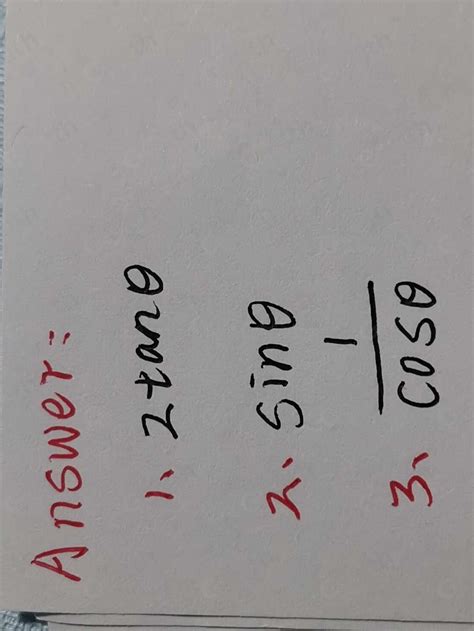 Answer:
1、2tanθ
2、sinθ
3、1/cosθ